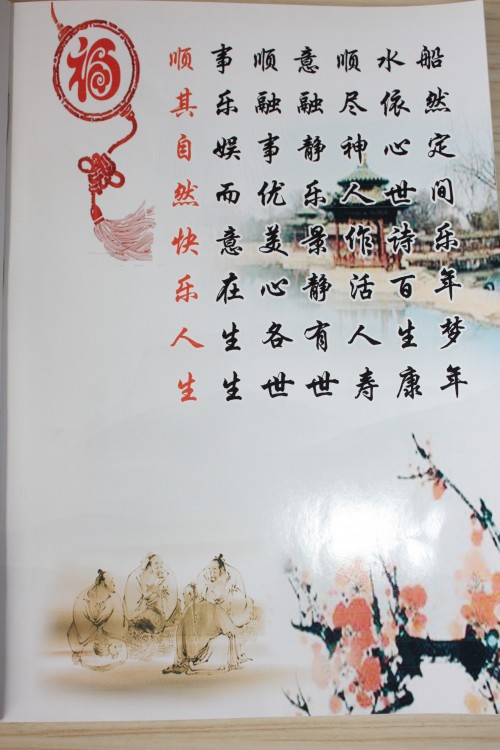 福
顺事顺意顺水船
其乐融融尽依然
自娱事静神心定
然而优乐人世间
快意美景作诗乐
乐在心静活百年
人生各有人生梦
生生世世寿康年